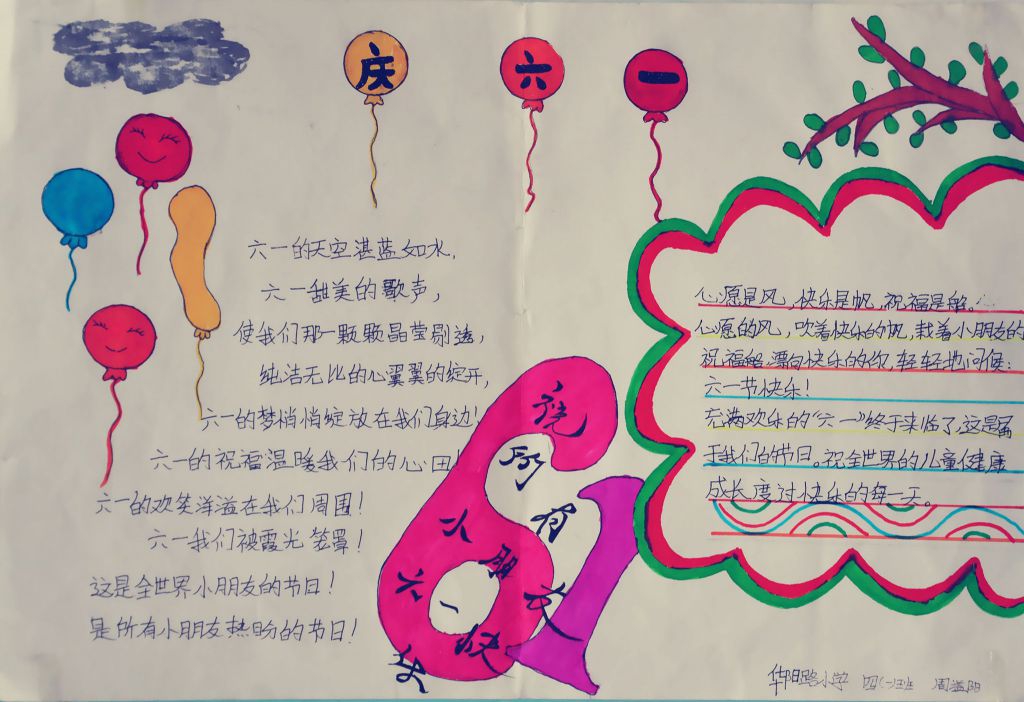 庆六一
六一的天空湛蓝如水,
六一甜美的歌声,
使我们那一颗颗晶莹剔透,
纯洁无比的心翼翼的绽开,
六一的梦悄悄绽放在我们身边!
六一的祝福温暖我们的心田!
六一的欢笑洋溢在我们周围!
六一我们被霞光笼罩!
这是全世界小朋友的节日!
是所有小朋友热盼的节日!
祝所有小朋友六一快乐
心愿是风,快乐是帆,祝福是船。
心愿的风,吹着快乐的帆,载着小朋友的
祝福船漂向快乐的你,轻轻地问候:
六一节快乐!
充满欢乐的“六一”终于来临了,这是属
于我们的节日。祝全世界的儿童健康
成长,度过快乐的每一天。
小学 四(一)班 周益阳